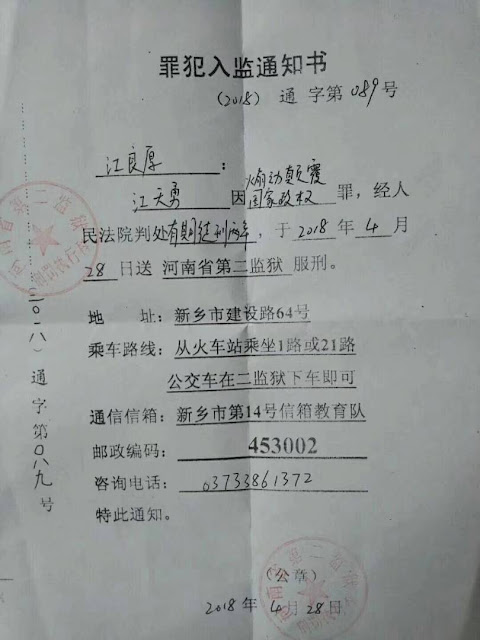 罪犯入监通知书
(2018) 通 字第 089号
江良厚 :
江天勇 因 煽动颠覆国家政权 罪，经人
民法院判处有期徒刑两年，于 2018 年 4 月
28 日送 河南省第二监狱 服刑。
地 址: 新乡市建设路64号
乘车路线: 从火车站乘坐1路或21路
公交车在二监狱下车即可
通信信箱: 新乡市第14号信箱教育队
邮政编码: 453002
咨询电话: 03733861372
特此通知。
(公章)
2018 年 4 月 28 日
(二〇一八) 通字第〇八九号
河南省第二监狱